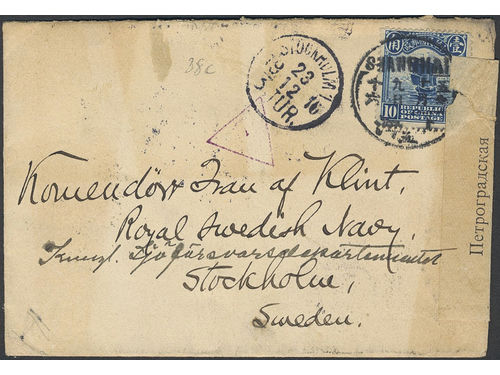 38c
STOCKHOLM 1.
23
12 16
TUR.
SHANGHAI
壹
REPUBLIC
OF CHINA
POSTAGE
10
Komendör Fran af Klint,
Royal Swedish Navy,
Kungl. Sjöförsvarsdepartementet
Stockholm,
Sweden.
Петроградская